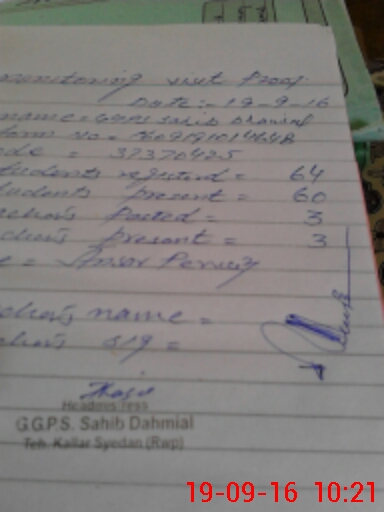 monitoring visit Proof
Date:- 19-9-16
name = GGPS Sahib Dhamial
ode = 37370425
tudents registerd = 64
tudents present = 60
eachers Posted = 3
chers present = 3
e = Ansar Perveiz
chers name =
chers sig =
Headmistress
G.G.P.S. Sahib Dahmial
Teh. Kallar Syedan (Rwp)
19-09-16 10:21